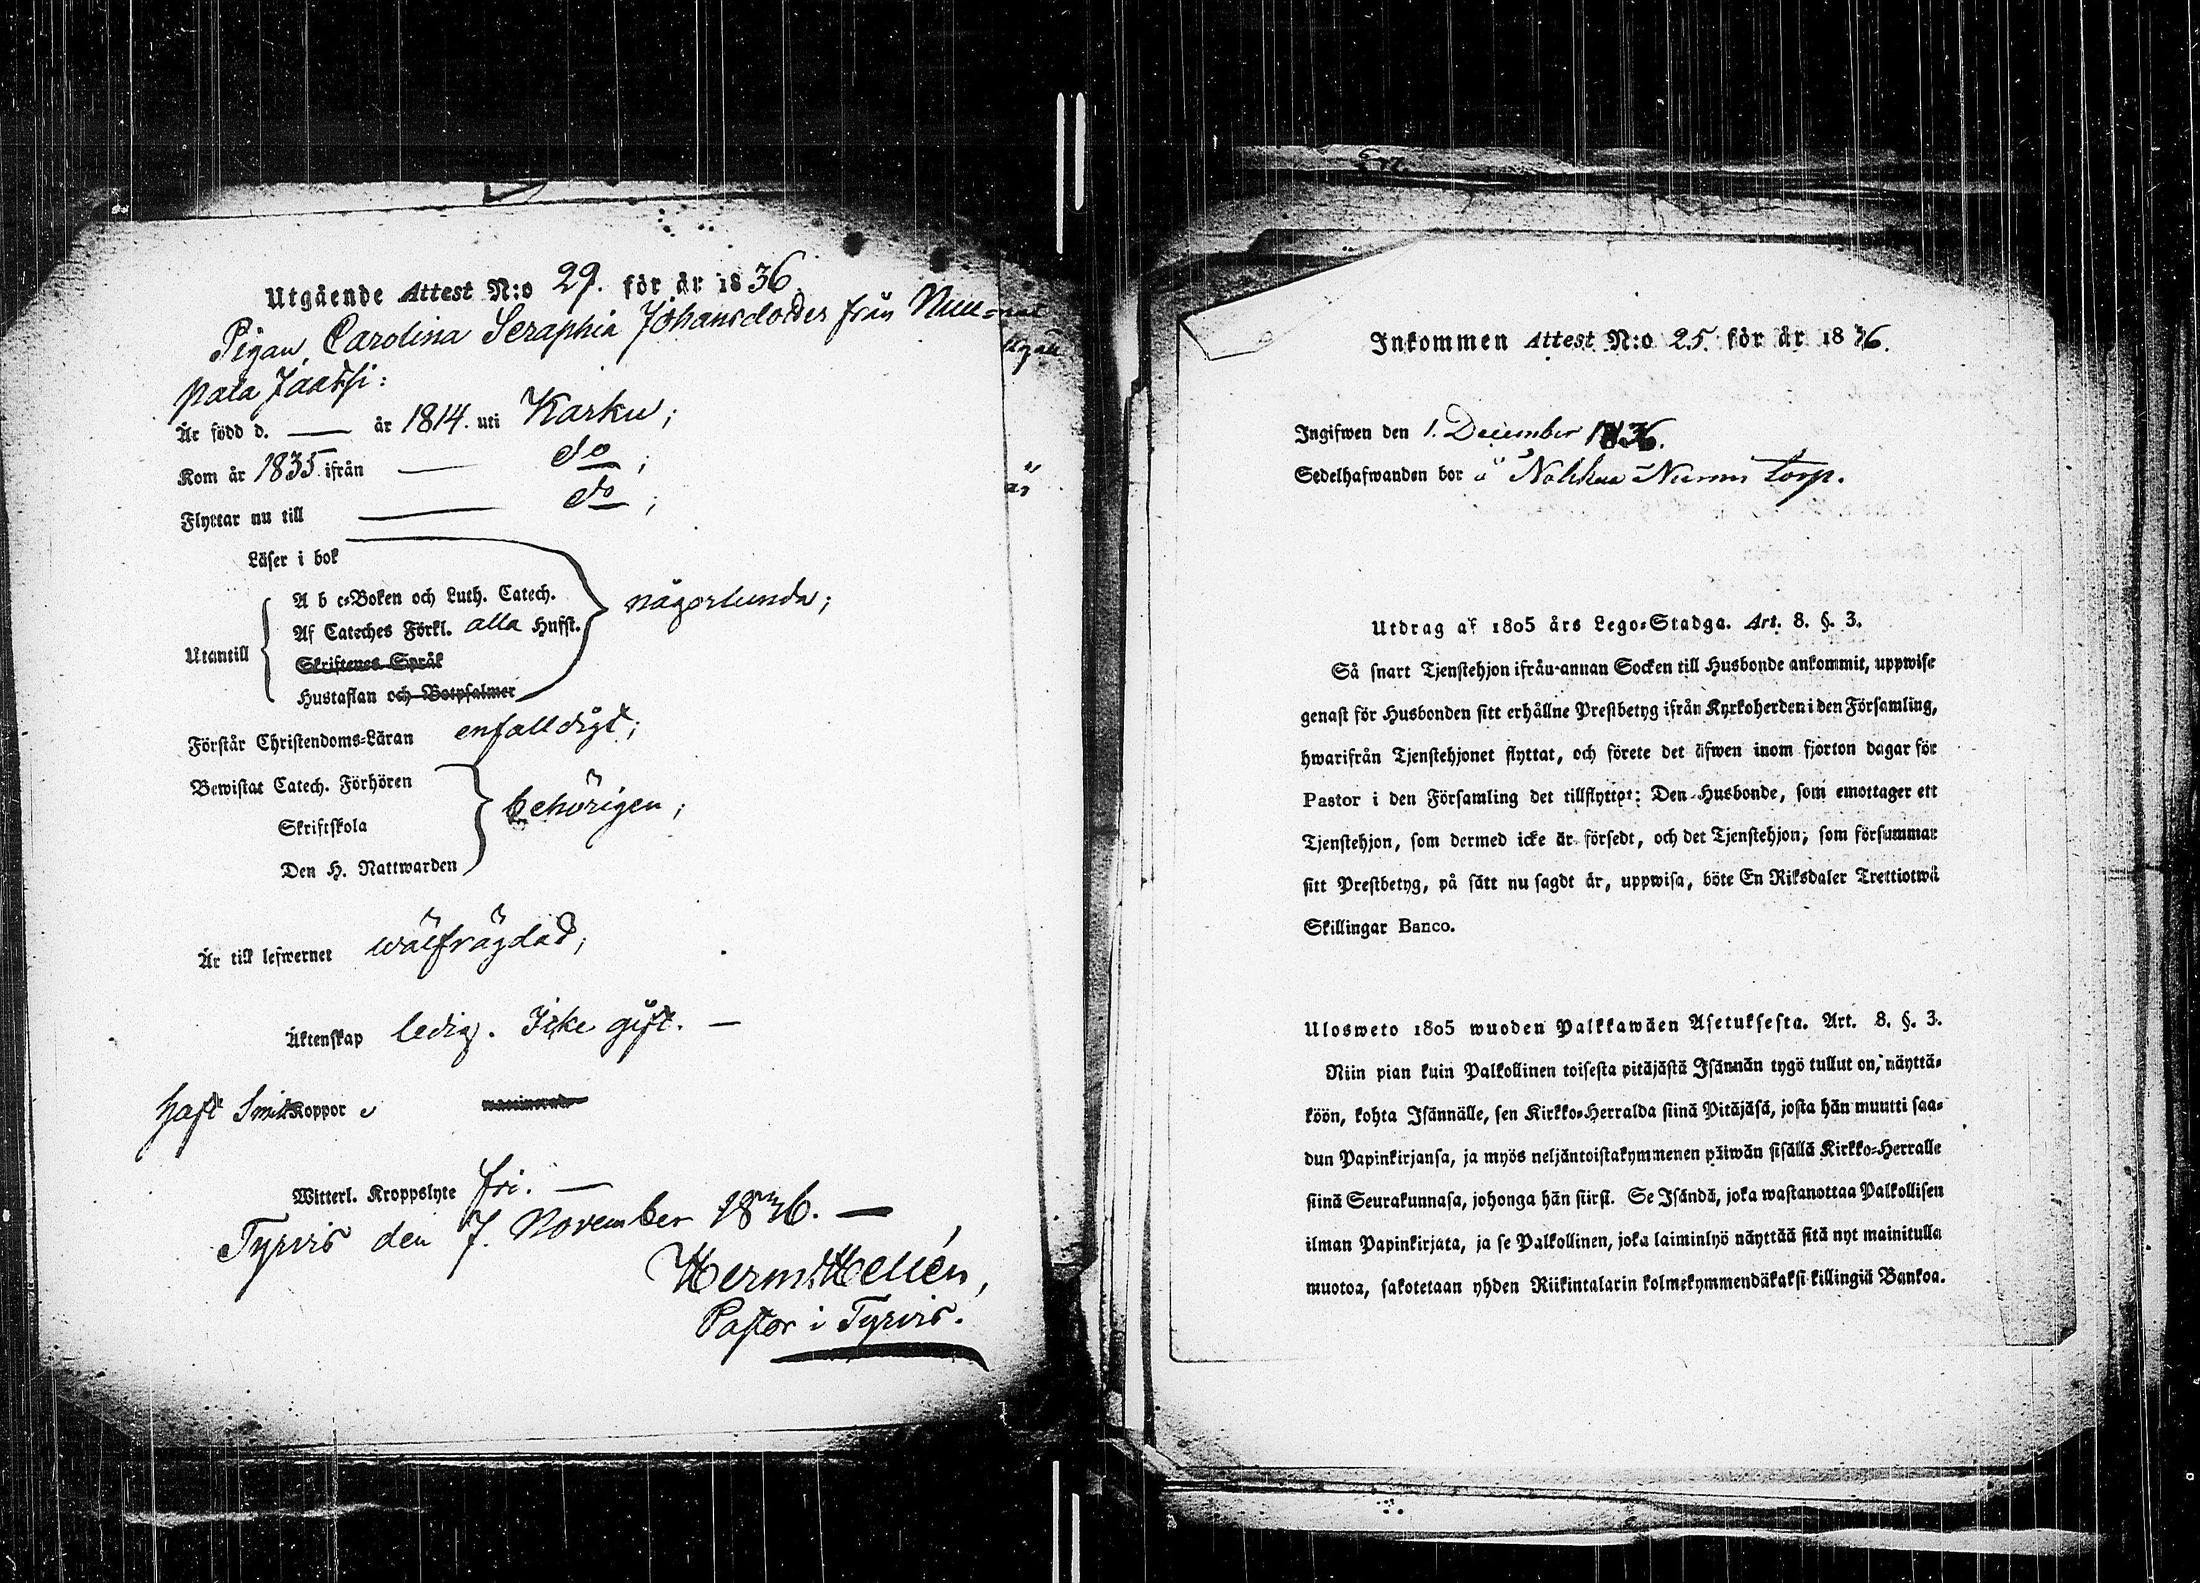 Utgående Attest N:o 29. för år 1836.
Pigan, Carolina Seraphia Johansdotter från Nuu=
pala Jaatsi:
Är född d. —— år 1814. uti Karku;
Kom år 1835 ifrån —— do;
Flyttar nu till —— do;
Läser i bok
A b c=Boken och Luth. Catech.
någorlunda;
Af Cateches Förkl. alla Hufst.
Utantill
Skriftenes Språk
Hustaflan och Botpsalmer
Förstår Christendoms=Läran enfalldigt;
Bewistat Catech. Förhören
behörigen;
Skriftskola
Den H. Nattwarden
Är till lefwernet wälfrägdad;
Äktenskap ledig. Icke gift. —
haft Smittkoppor
Witterl. Kroppslyte fri. —
Tyrvis den 7. November 1836. —
Herm. Hellén,
Pastor i Tyrvis.
Inkommen Attest N:o 25. för år 1836.
Ingifwen den 1. December 1836.
Sedelhafwanden bor å Nohkua Nurmi torp.
Utdrag af 1805 års Lego=Stadga. Art. 8. §. 3.
Så snart Tjenstehjon ifrån annan Socken till Husbonde ankommit, uppwise
genast för Husbonden sitt erhållne Prestbetyg ifrån Kyrkoherden i den Församling,
hwarifrån Tjenstehjonet flyttat, och förete det äfwen inom fjorton dagar för
Pastor i den Församling det tillflyttat: Den Husbonde, som emottager ett
Tjenstehjon, som dermed icke är försedt, och det Tjenstehjon, som försummar
sitt Prestbetyg, på sätt nu sagdt är, uppwisa, böte En Riksdaler Trettiotwå
Skillingar Banco.
Ulosweto 1805 wuoden Palkkawäen Asetuksesta. Art. 8. §. 3.
Niin pian kuin Palkollinen toisesta pitäjästä Isännän tygö tullut on, näyttä=
köön, kohta Isännälle, sen Kirkko=Herralda siinä Pitäjäsä, josta hän muutti saa=
dun Papinkirjansa, ja myös neljäntoistakymmenen päiwän sisällä Kirkko=Herralle
siinä Seurakunnasa, johonga hän siirsi. Se Isändä, joka wastanottaa Palkollisen
ilman Papinkirjata, ja se Palkollinen, joka laiminlyö näyttää sitä nyt mainitulla
muotoa, sakotetaan yhden Riikintalarin kolmekymmendäkaksi killingiä Bankoa.